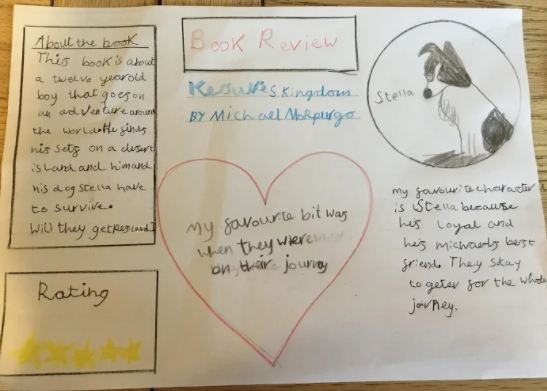 About the book
This book is about
a twelve year old
boy that goes on
an adventure around
the world. He finds
his self on a desert
island and him and
his dog Stella have
to survive.
Will they get
Book Review
Kensuke's Kingdom
BY Michael Morpurgo
Stella
My favourite bit was
when they were
on their journey
my favourite character
is Stella because
he's Loyal and
he's michaels best
friend. They stay
togeter for the whole
jorney.
Rating